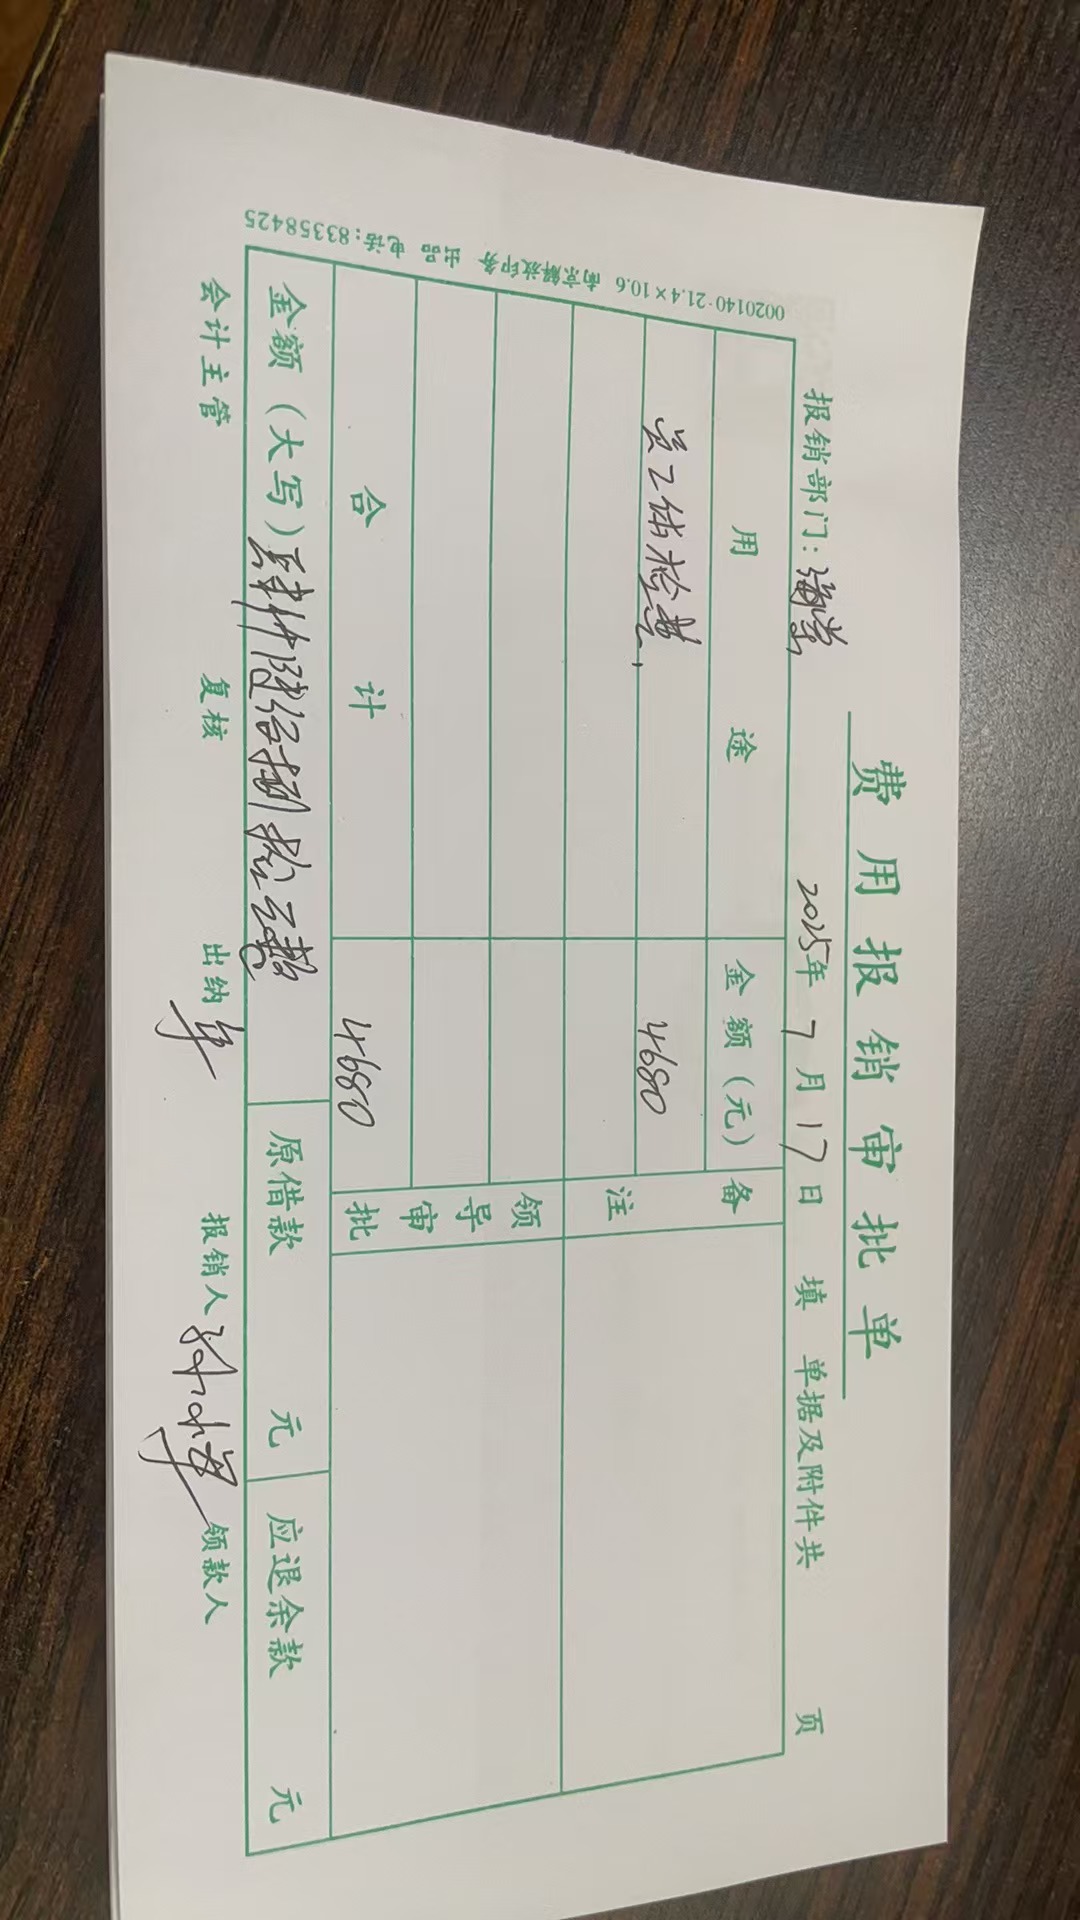 费用报销审批单
报销部门：海棠 2025年7月17日 填 单据及附件共 页
用途 金额（元） 备注
员工体检费 4680
领导审批
合计 4680
金额（大写）肆仟陆佰捌拾元整 原借款 元 应退余款 元
会计主管 复核 出纳 报销人 领款人
0020140·21.4×10.6 南京解放印务 出品 电话：83358425